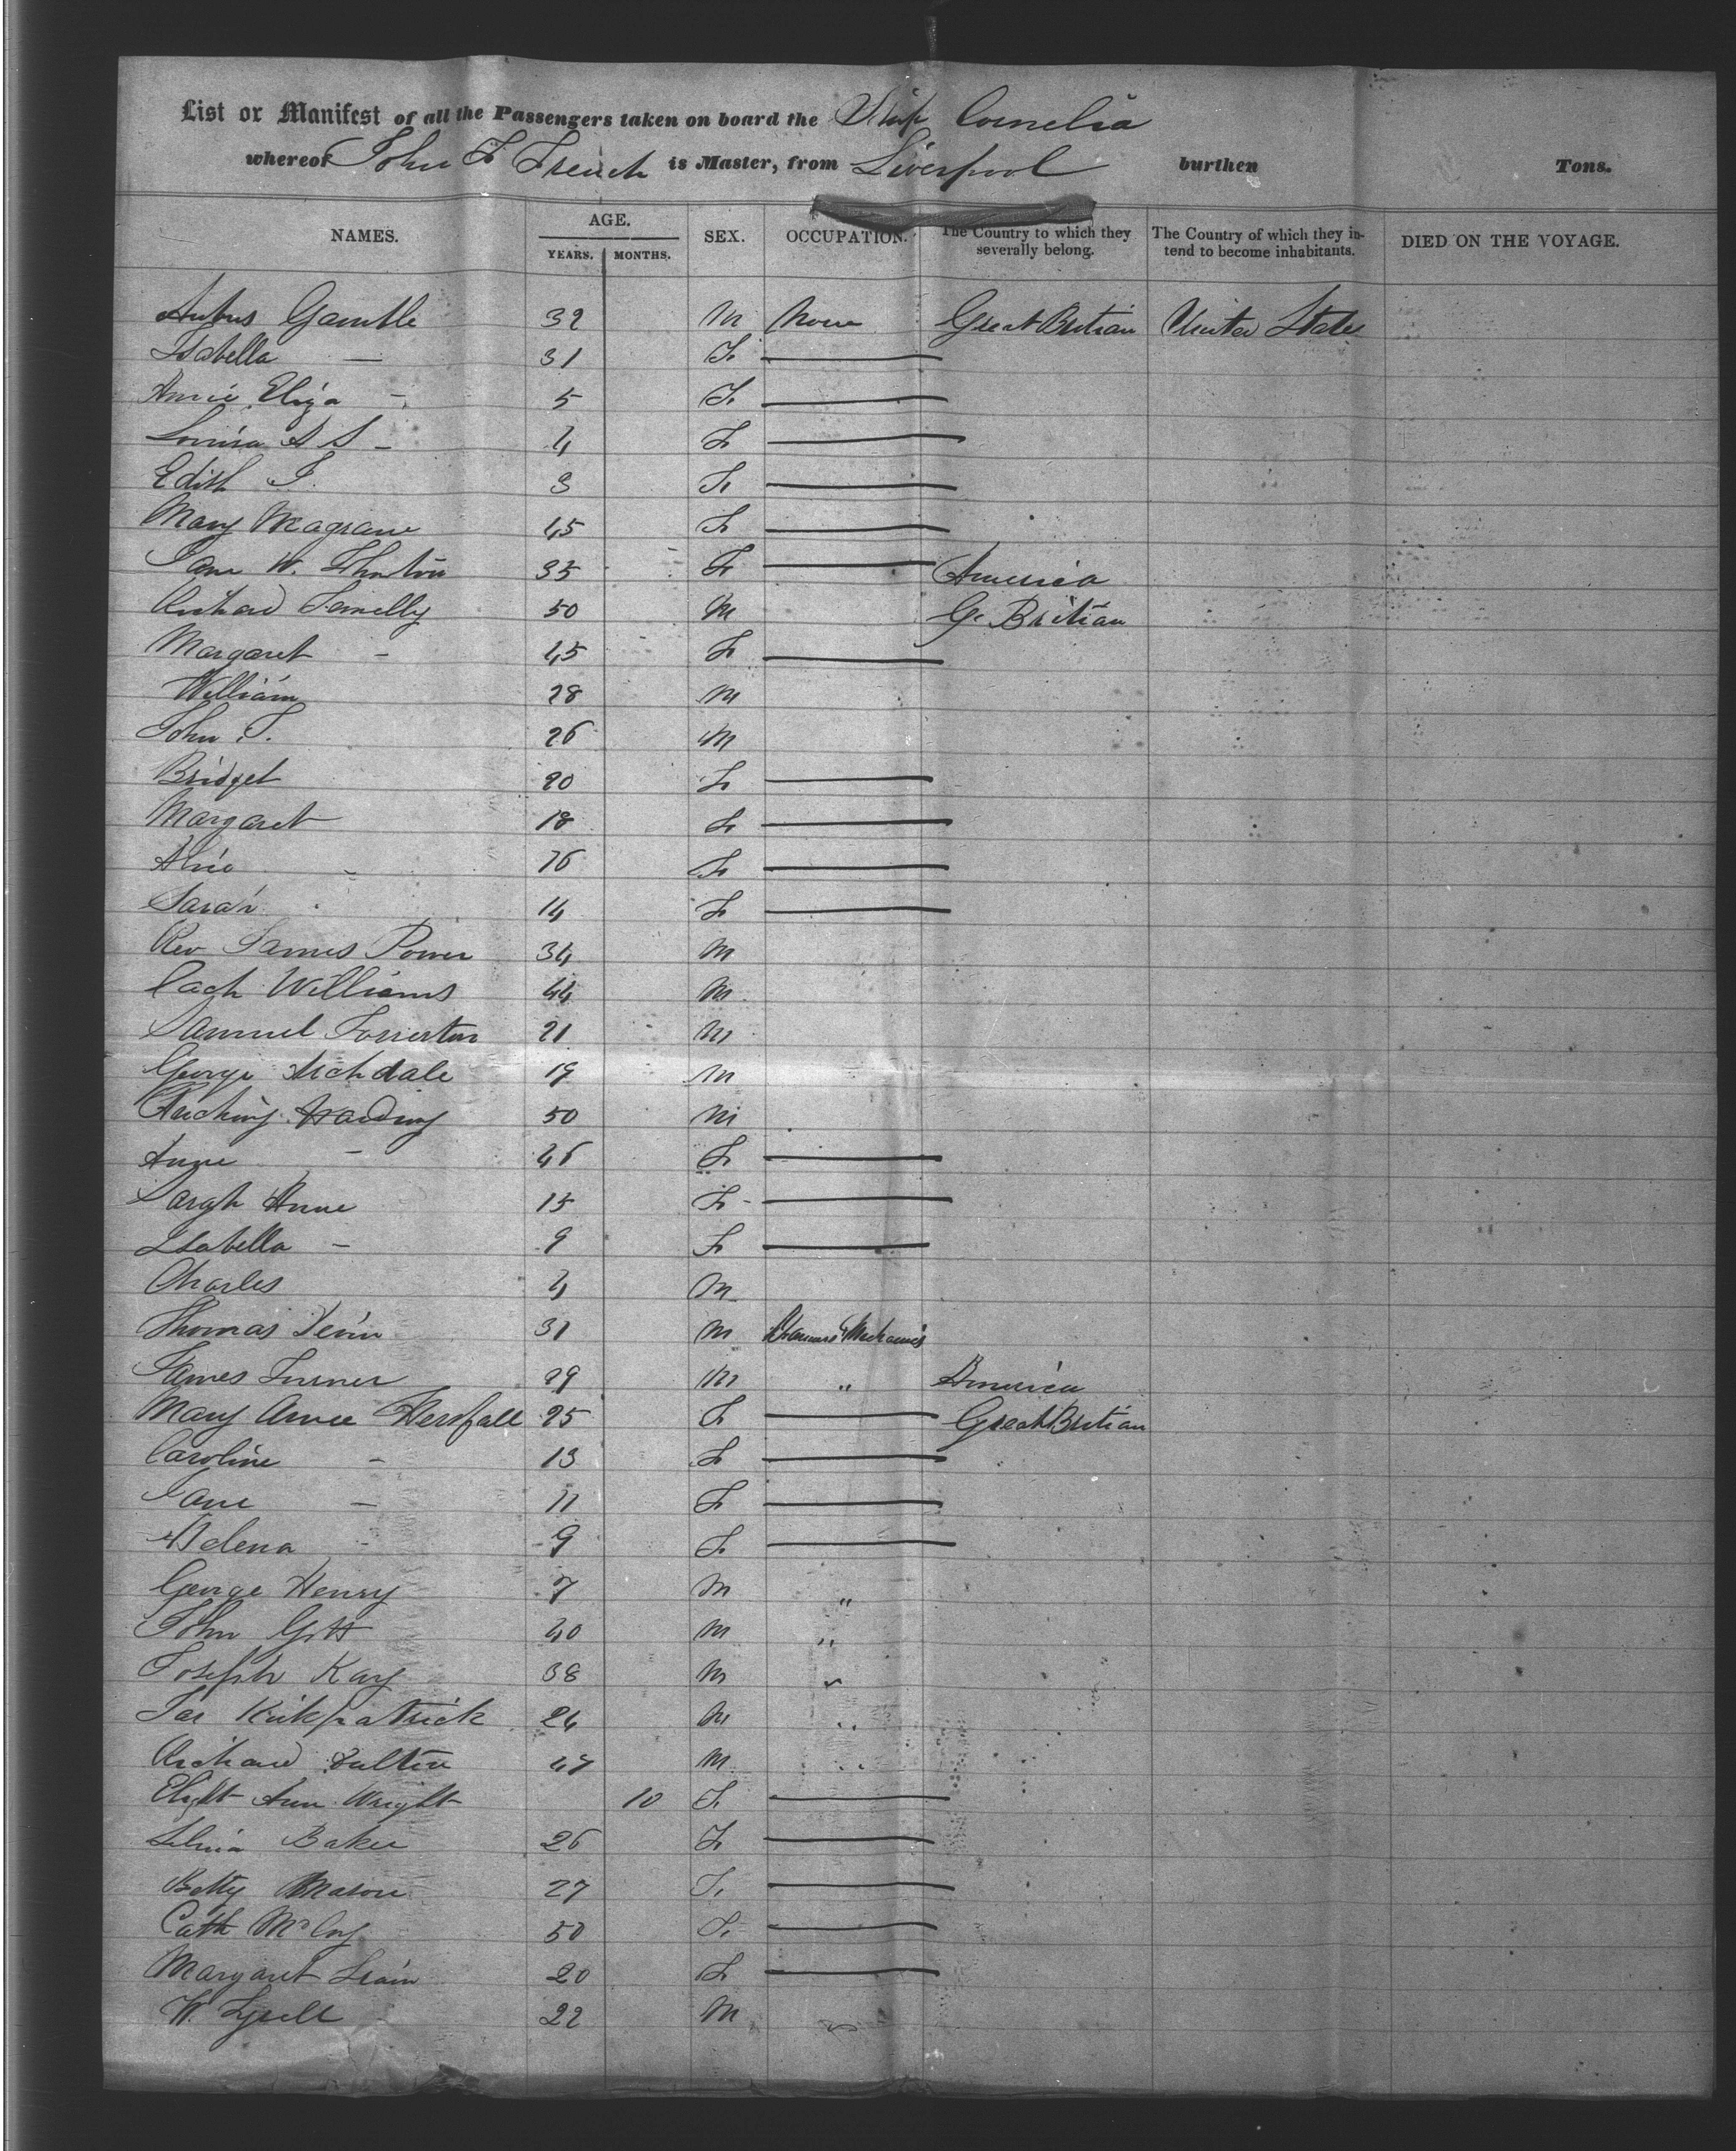 List or Manifest of all the Passengers taken on board the Ship Cornelia
whereof John F French is Master, from Liverpool burthen Tons.
NAMES. AGE. YEARS. MONTHS. SEX. OCCUPATION. The Country to which they severally belong. The Country of which they intend to become inhabitants. DIED ON THE VOYAGE.
Gamble 32 M None Great Britian United States
Isabella — 31 F
Annie Eliza - 5 F
Louisa A S - 4 F
Edith I. 3 F
Mary Magrane 45 F
Jane W. 35 F America
Richard 50 M G. Britian
Margaret - 45 F
William 28 M
John T. 26 M
Bridget 20 F
Margaret 18 F
Alice - 16 F
Sarah 14 F
Rev James Power 34 M
Cach Williams 44 M
Samuel 21 M
George Archdale 19 M
Harding 50 M
Anne - 46 F
Sarah Anne 15 F
Isabella - 9 F
Charles 4 M
Thomas 31 M Mechanics
James Turner 29 M " America
Mary Annie Horsfall 25 F Great Britian
Caroline - 13 F
Jane — 11 F
Helena - 9 F
George Henry 7 M "
John Gott 40 M "
Joseph Kay 38 M "
Jas Kirkpatrick 24 M "
Richard 47 M "
Ann Wright 10 F
Baker 26 F
Betty Mason 27 F
Cath McCoy 50 F
Margaret 20 F
W. 22 M "